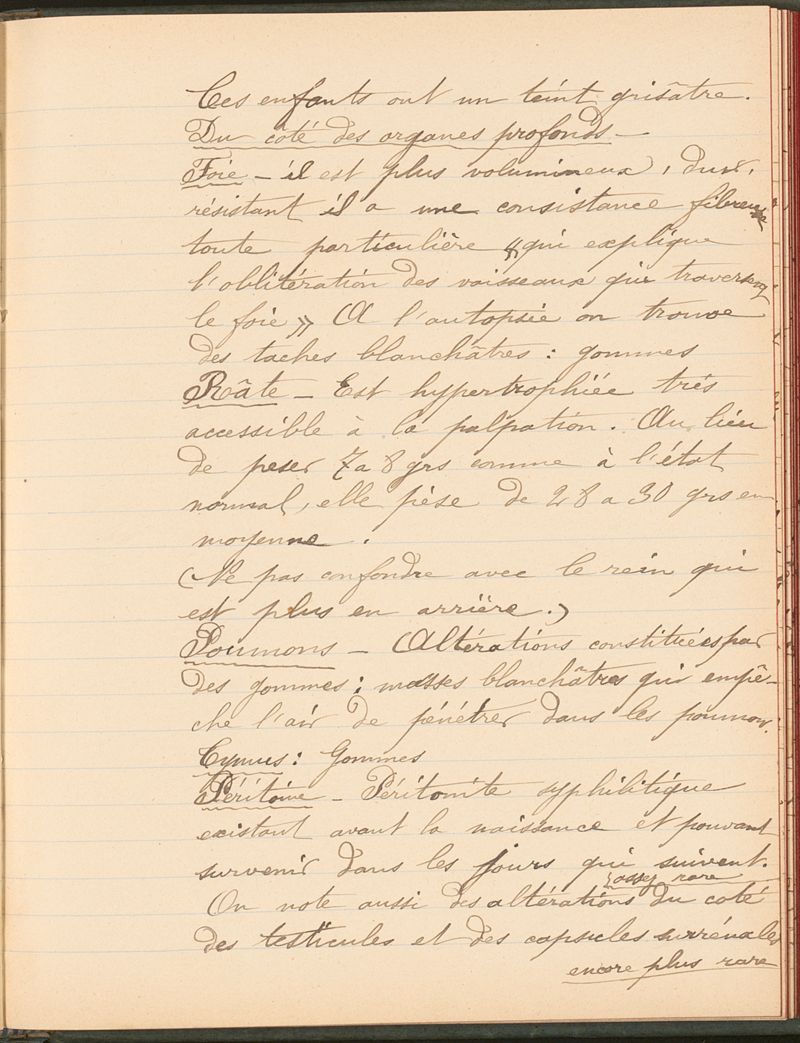 Ces enfants ont un teint grisâtre.
Du côté des organes profonds —
Foie — il est plus volumineux, dur,
résistant il a une consistance fibreuse
toute particulière « qui explique
l'oblitération des vaisseaux qui traversent
le foie » A l'autopsie on trouve
des taches blanchâtres : gommes
Râte — Est hypertrophiée très
accessible à la palpation. Au lieu
de peser 7 a 8 grs comme à l'état
normal, elle pèse de 28 a 30 grs en
moyenne.
(Ne pas confondre avec le rein qui
est plus en arrière.)
Poumons — Altérations constituées par
des gommes : masses blanchâtres qui empê-
che l'air de pénétrer dans les poumons.
Cymus : Gommes
Péritoine — Péritonite syphilitique
existant avant la naissance et pouvant
survenir dans les jours qui suivent.
assez rare
On note aussi des altérations du coté
des testicules et des capsules surrénales
encore plus rare